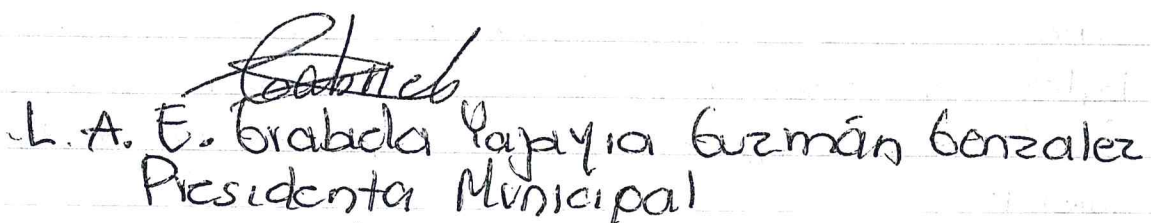 Gabriela
L. A. E. Grabiela Yajayia Guzmán Gonzalez
Presidenta Municipal